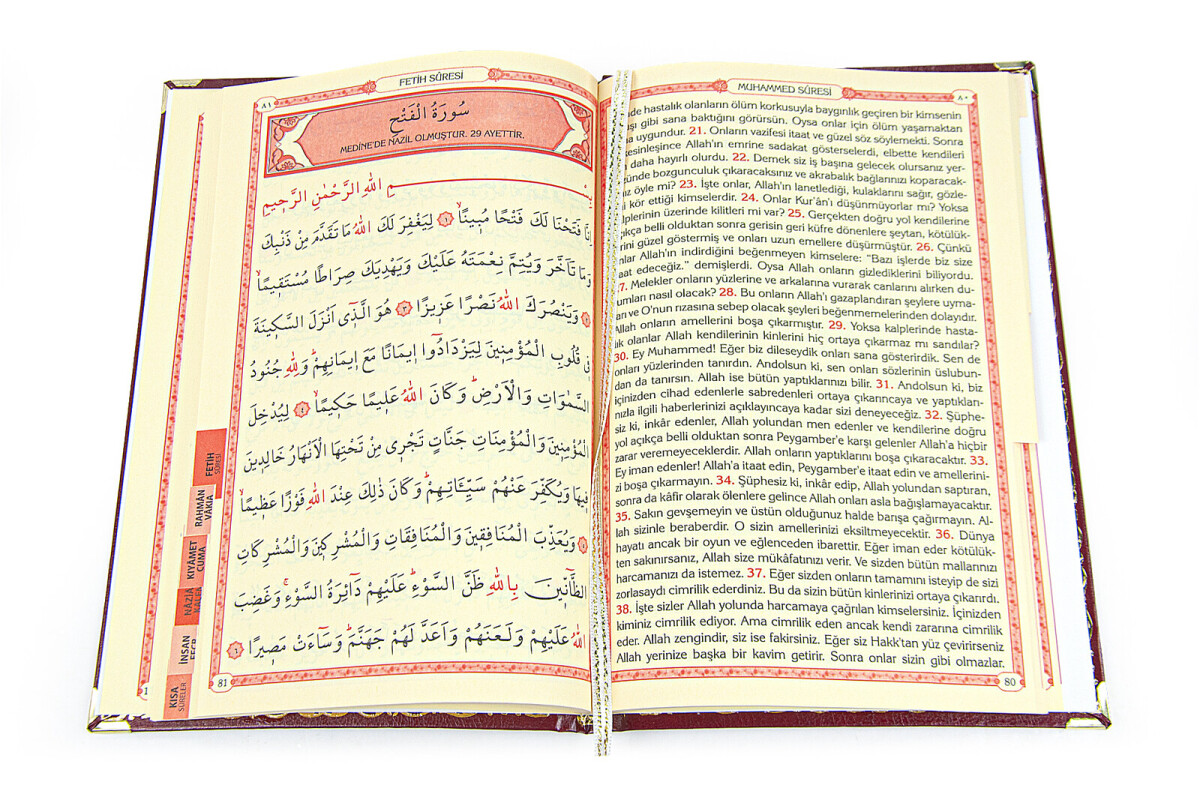 MUHAMMED SÛRESİ
٨٠
de hastalık olanların ölüm korkusuyla baygınlık geçiren bir kimsenin
şı gibi sana baktığını görürsün. Oysa onlar için ölüm yaşamaktan
a uygundur. 21. Onların vazifesi itaat ve güzel söz söylemekti. Sonra
esinleşince Allah'ın emrine sadakat gösterselerdi, elbette kendileri
daha hayırlı olurdu. 22. Demek siz iş başına gelecek olursanız yer-
ünde bozgunculuk çıkaracaksınız ve akrabalık bağlarınızı koparacak-
ız öyle mi? 23. İşte onlar, Allah'ın lanetlediği, kulaklarını sağır, gözle-
i kör ettiği kimselerdir. 24. Onlar Kur'ân'ı düşünmüyorlar mı? Yoksa
lplerinin üzerinde kilitleri mi var? 25. Gerçekten doğru yol kendilerine
çıkça belli olduktan sonra gerisin geri küfre dönenlere şeytan, kötülük-
rini güzel göstermiş ve onları uzun emellere düşürmüştür. 26. Çünkü
nlar Allah'ın indirdiğini beğenmeyen kimselere: "Bazı işlerde biz size
aat edeceğiz." demişlerdi. Oysa Allah onların gizlediklerini biliyordu.
7. Melekler onların yüzlerine ve arkalarına vurarak canlarını alırken du-
umları nasıl olacak? 28. Bu onların Allah'ı gazaplandıran şeylere uyma-
arı ve O'nun rızasına sebep olacak şeyleri beğenmemelerinden dolayıdır.
Allah onların amellerini boşa çıkarmıştır. 29. Yoksa kalplerinde hasta-
lık olanlar Allah kendilerinin kinlerini hiç ortaya çıkarmaz mı sandılar?
30. Ey Muhammed! Eğer biz dileseydik onları sana gösterirdik. Sen de
onları yüzlerinden tanırdın. Andolsun ki, sen onları sözlerinin üslubun-
dan da tanırsın. Allah ise bütün yaptıklarınızı bilir. 31. Andolsun ki, biz
içinizden cihad edenlerle sabredenleri ortaya çıkarıncaya ve yaptıkları-
nızla ilgili haberlerinizi açıklayıncaya kadar sizi deneyeceğiz. 32. Şüphe-
siz ki, inkâr edenler, Allah yolundan men edenler ve kendilerine doğru
yol açıkça belli olduktan sonra Peygamber'e karşı gelenler Allah'a hiçbir
zarar veremeyeceklerdir. Allah onların yaptıklarını boşa çıkaracaktır. 33.
Ey iman edenler! Allah'a itaat edin, Peygamber'e itaat edin ve amellerini-
zi boşa çıkarmayın. 34. Şüphesiz ki, inkâr edip, Allah yolundan saptıran,
sonra da kâfir olarak ölenlere gelince Allah onları asla bağışlamayacaktır.
35. Sakın gevşemeyin ve üstün olduğunuz halde barışa çağırmayın. Al-
lah sizinle beraberdir. O sizin amellerinizi eksiltmeyecektir. 36. Dünya
hayatı ancak bir oyun ve eğlenceden ibarettir. Eğer iman eder kötülük-
ten sakınırsanız, Allah size mükâfatınızı verir. Ve sizden bütün mallarınızı
harcamanızı da istemez. 37. Eğer sizden onların tamamını isteyip de sizi
zorlasaydı cimrilik ederdiniz. Bu da sizin bütün kinlerinizi ortaya çıkarırdı.
38. İşte sizler Allah yolunda harcamaya çağrılan kimselersiniz. İçinizden
kiminiz cimrilik ediyor. Ama cimrilik eden ancak kendi zararına cimrilik
eder. Allah zengindir, siz ise fakirsiniz. Eğer siz Hakk'tan yüz çevirirseniz
Allah yerinize başka bir kavim getirir. Sonra onlar sizin gibi olmazlar.
80
FETİH SÛRESİ
٨١
سُورَةُ الْفَتْحِ
MEDİNE'DE NAZİL OLMUŞTUR. 29 AYETTİR.
بِسْمِ اللهِ الرَّحْمٰنِ الرَّح۪يمِ
اِنَّا فَتَحْنَا لَكَ فَتْحًا مُب۪ينًاۙ ﴿١﴾ لِيَغْفِرَ لَكَ اللهُ مَا تَقَدَّمَ مِنْ ذَنْبِكَ
وَمَا تَاَخَّرَ وَيُتِمَّ نِعْمَتَهُ عَلَيْكَ وَيَهْدِيَكَ صِرَاطًا مُسْتَق۪يمًاۙ
﴿٢﴾ وَيَنْصُرَكَ اللهُ نَصْرًا عَز۪يزًا ﴿٣﴾ هُوَ الَّذ۪ٓي اَنْزَلَ السَّك۪ينَةَ
ف۪ي قُلُوبِ الْمُؤْمِن۪ينَ لِيَزْدَادُٓوا ا۪يمَانًا مَعَ ا۪يمَانِهِمْۜ وَلِلّٰهِ جُنُودُ
السَّمٰوَاتِ وَالْاَرْضِۜ وَكَانَ اللهُ عَل۪يمًا حَك۪يمًاۙ ﴿٤﴾ لِيُدْخِلَ
الْمُؤْمِن۪ينَ وَالْمُؤْمِنَاتِ جَنَّاتٍ تَجْر۪ي مِنْ تَحْتِهَا الْاَنْهَارُ خَالِد۪ينَ
ف۪يهَا وَيُكَفِّرَ عَنْهُمْ سَيِّـَٔاتِهِمْۜ وَكَانَ ذٰلِكَ عِنْدَ اللهِ فَوْزًا عَظ۪يمًاۙ
﴿٥﴾ وَيُعَذِّبَ الْمُنَافِق۪ينَ وَالْمُنَافِقَاتِ وَالْمُشْرِك۪ينَ وَالْمُشْرِكَاتِ
الظَّٓانّ۪ينَ بِاللهِ ظَنَّ السَّوْءِۜ عَلَيْهِمْ دَٓائِرَةُ السَّوْءِۚ وَغَضِبَ
اللهُ عَلَيْهِمْ وَلَعَنَهُمْ وَاَعَدَّ لَهُمْ جَهَنَّمَۜ وَسَٓاءَتْ مَص۪يرًا ﴿٦﴾
81
FETİH
SÛRESİ
RAHMÂN
VÂKIA
KIYÂMET
CUMA
NÂZİÂ
İNSAN
KISA
SÛRELER
1